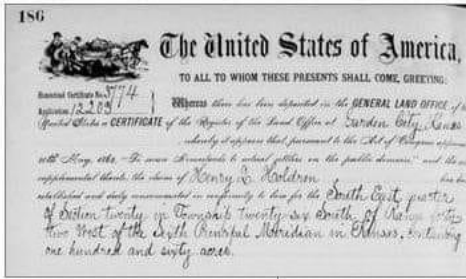 186
The United States of America,
TO ALL TO WHOM THESE PRESENTS SHALL COME, GREETING:
Homestead Certificate No. 3774
Application 12203
Whereas there has been deposited in the GENERAL LAND OFFICE of
United States a CERTIFICATE of the Register of the Land Office at Garden City, Kansas
, whereby it appears that pursuant to the Act of Congress approved
20th May, 1862, "To secure Homesteads to actual settlers on the public domain," and the
supplemental thereto, the claim of Henry L. Holdren has been
established and duly consummated in conformity to law for the South East quarter
of Section twenty in Township twenty six South of Range forty
two West of the Sixth Principal Meridian in Kansas, containing
one hundred and sixty acres.